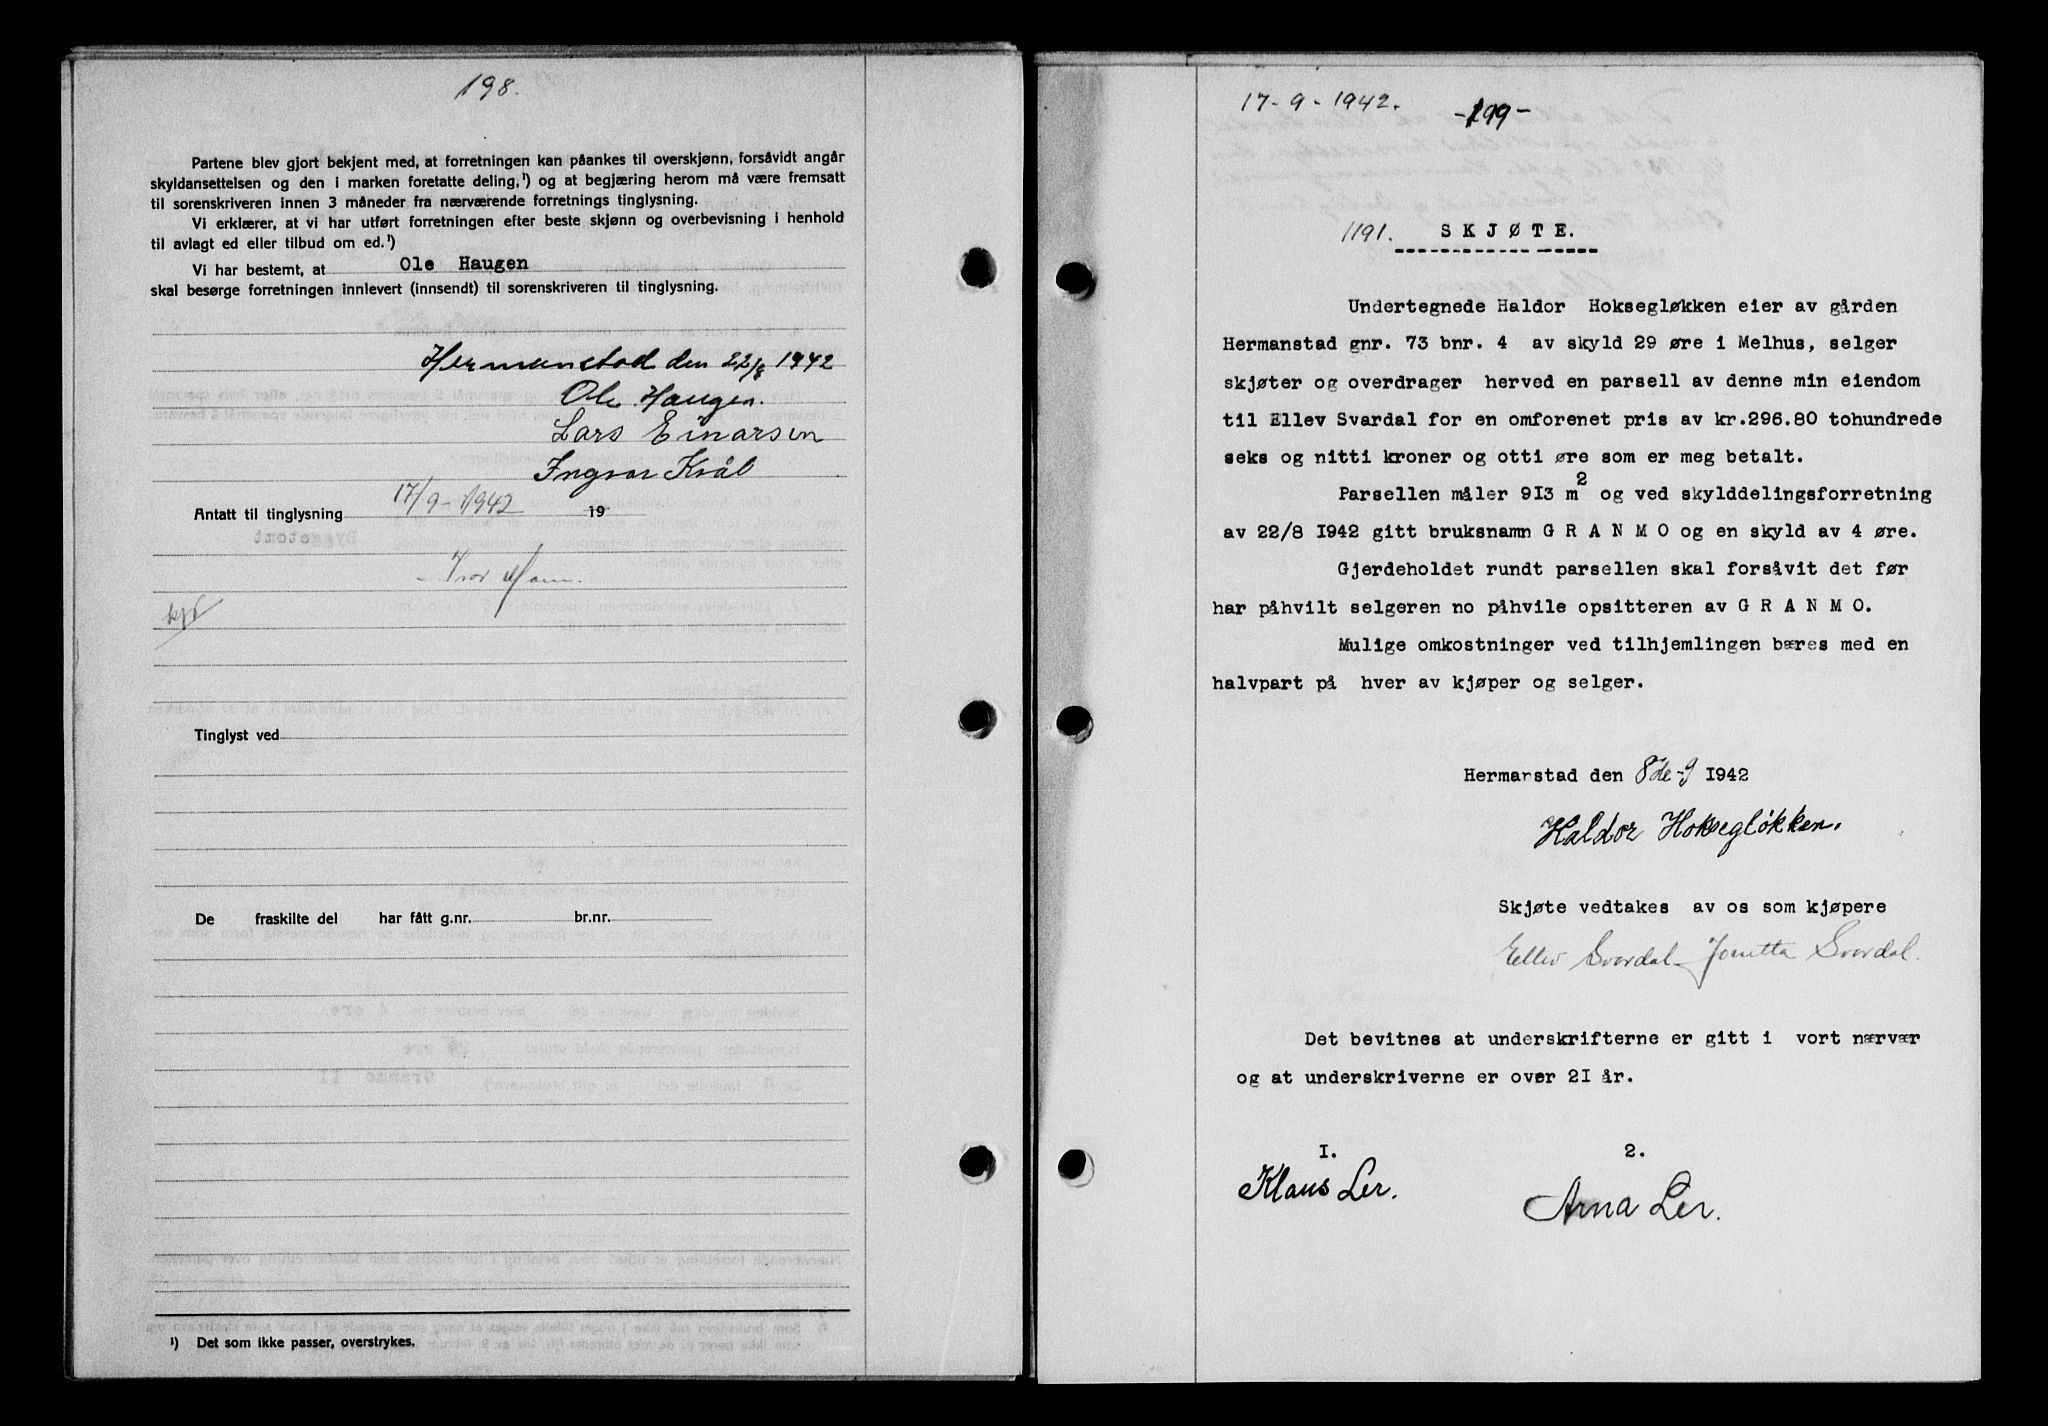 198.
Partene blev gjort bekjent med, at forretningen kan påankes til overskjønn, forsåvidt angår
skyldansettelsen og den i marken foretatte deling,¹) og at begjæring herom må være fremsatt
til sorenskriveren innen 3 måneder fra nærværende forretnings tinglysning.
Vi erklærer, at vi har utført forretningen efter beste skjønn og overbevisning i henhold
til avlagt ed eller tilbud om ed.¹)
Vi har bestemt, at Ole Haugen
skal besørge forretningen innlevert (innsendt) til sorenskriveren til tinglysning.
Hermanstad den 22/8 1942
Ole Haugen.
Lars Einarsen
Ingvar Kvål
Antatt til tinglysning 17/9-1942 19
Tinglyst ved
De fraskilte del har fått g.nr. br.nr.
¹) Det som ikke passer, overstrykes.
17-9-1942. -199-
1191. SKJØTE.
Undertegnede Haldor Hoksegløkken eier av gården
Hermanstad gnr. 73 bnr. 4 av skyld 29 øre i Melhus, selger
skjøter og overdrager herved en parsell av denne min eiendom
til Ellev Svardal for en omforenet pris av kr.296.80 tohundrede
seks og nitti kroner og otti øre som er meg betalt.
Parsellen måler 913 m² og ved skylddelingsforretning
av 22/8 1942 gitt bruksnamn G R A N M O og en skyld av 4 øre.
Gjerdeholdet rundt parsellen skal forsåvit det før
har påhvilt selgeren no påhvile opsitteren av G R A N M O.
Mulige omkostninger ved tilhjemlingen bæres med en
halvpart på hver av kjøper og selger.
Hermanstad den 8de-9 1942
Haldor Hoksegløkken.
Skjøte vedtakes av os som kjøpere
Ellev Svardal Jonetta Svardal.
Det bevitnes at underskrifterne er gitt i vort nærvær
og at underskriverne er over 21 år.
I. 2.
Klaus Ler. Arna Ler.